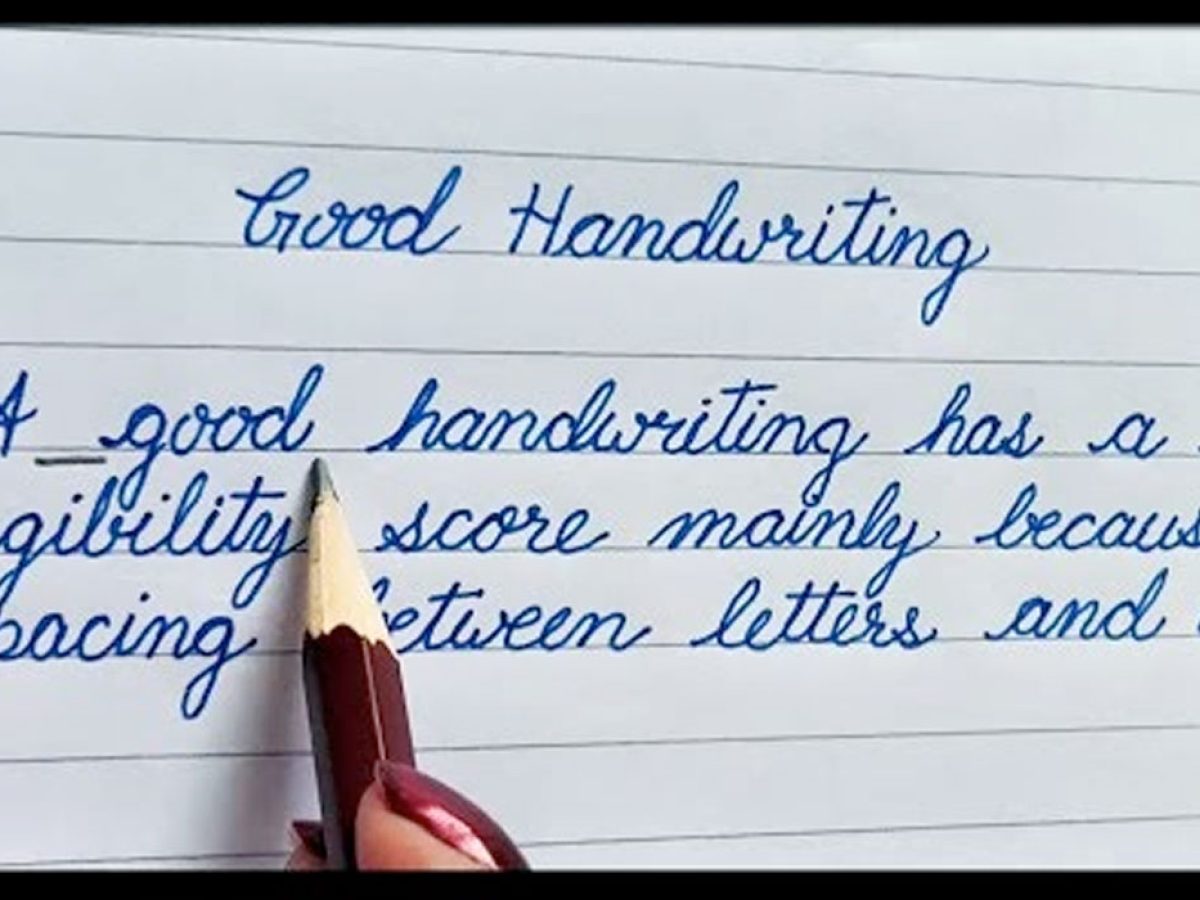 Good Handwriting
A good handwriting has a
gibility score mainly becaus
pacing between letters and